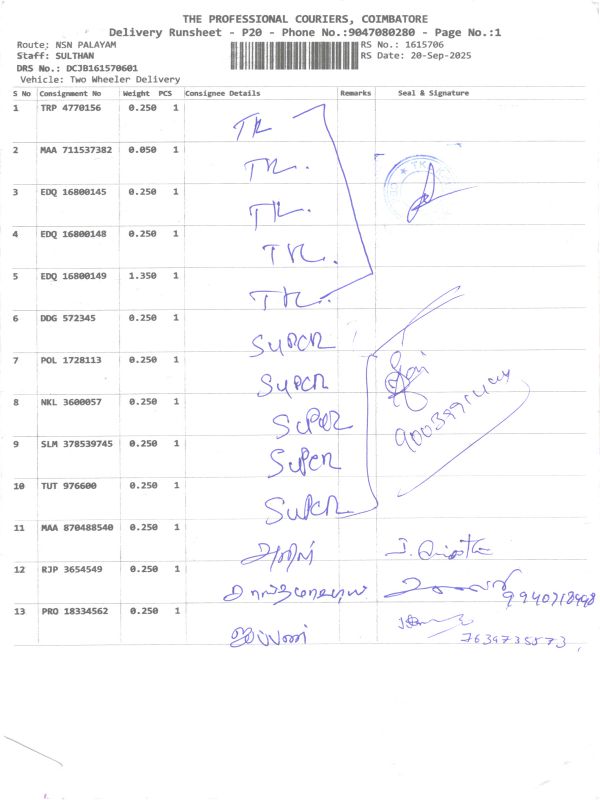 THE PROFESSIONAL COURIERS, COIMBATORE
Delivery Runsheet - P20 - Phone No.:9047080280 - Page No.:1
Route: NSN PALAYAM RS No.: 1615706
Staff: SULTHAN RS Date: 20-Sep-2025
DRS No.: DCJB161570601
Vehicle: Two Wheeler Delivery
S No Consignment No Weight PCS Consignee Details Remarks Seal & Signature
1 TRP 4770156 0.250 1 TK
2 MAA 711537382 0.050 1 TK.
3 EDQ 16800145 0.250 1 TK.
4 EDQ 16800148 0.250 1 TK.
5 EDQ 16800149 1.350 1 TK.
6 DDG 572345 0.250 1 SUPER
7 POL 1728113 0.250 1 SUPER
8 NKL 3600057 0.250 1 SUPER
9 SLM 378539745 0.250 1 SUPER
10 TUT 976600 0.250 1 SUPER
11 MAA 870488540 0.250 1
12 RJP 3654549 0.250 1 9940718998
13 PRO 18334562 0.250 1 7639735573